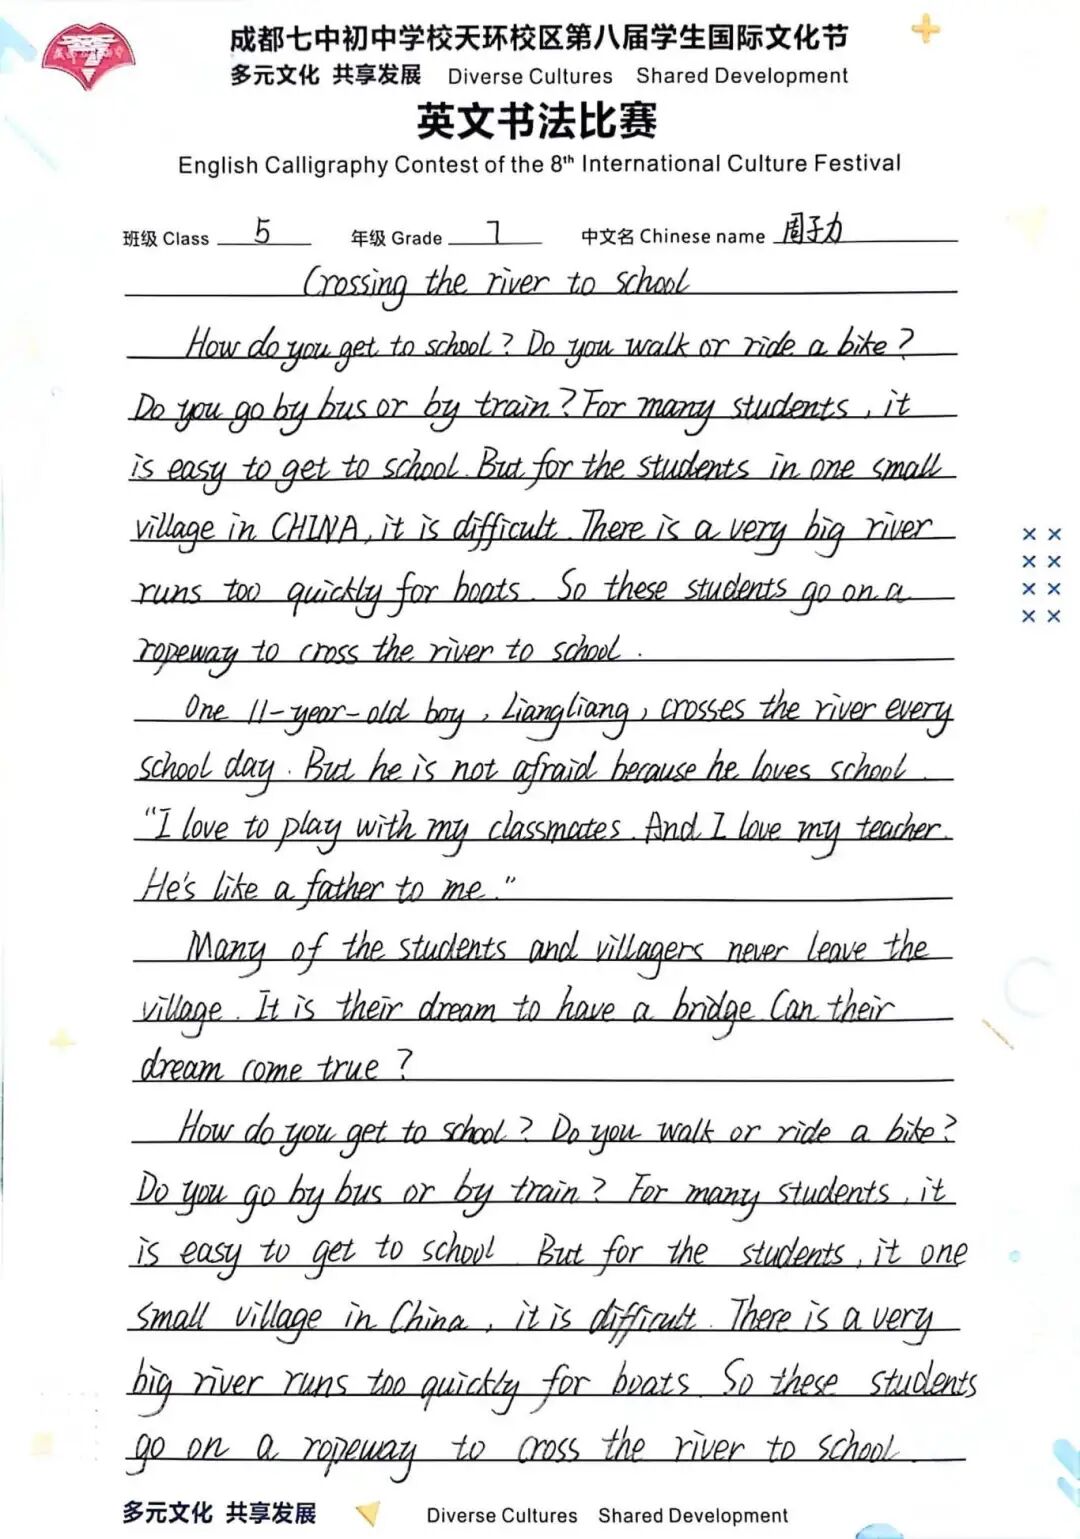 成都七中初中学校天环校区第八届学生国际文化节
多元文化 共享发展 Diverse Cultures Shared Development
英文书法比赛
English Calligraphy Contest of the 8th International Culture Festival
班级 Class 5 年级 Grade 7 中文名 Chinese name 周子力
Crossing the river to school
How do you get to school? Do you walk or ride a bike?
Do you go by bus or by train? For many students, it
is easy to get to school. But for the students in one small
village in CHINA, it is difficult. There is a very big river
runs too quickly for boats. So these students go on a
ropeway to cross the river to school.
One 11-year-old boy, Liangliang, crosses the river every
school day. But he is not afraid because he loves school.
"I love to play with my classmates. And I love my teacher.
He's like a father to me."
Many of the students and villagers never leave the
village. It is their dream to have a bridge. Can their
dream come true?
How do you get to school? Do you walk or ride a bike?
Do you go by bus or by train? For many students, it
is easy to get to school But for the students, it one
small village in China, it is difficult. There is a very
big river runs too quickly for boats. So these students
go on a ropeway to cross the river to school.
多元文化 共享发展 Diverse Cultures Shared Development